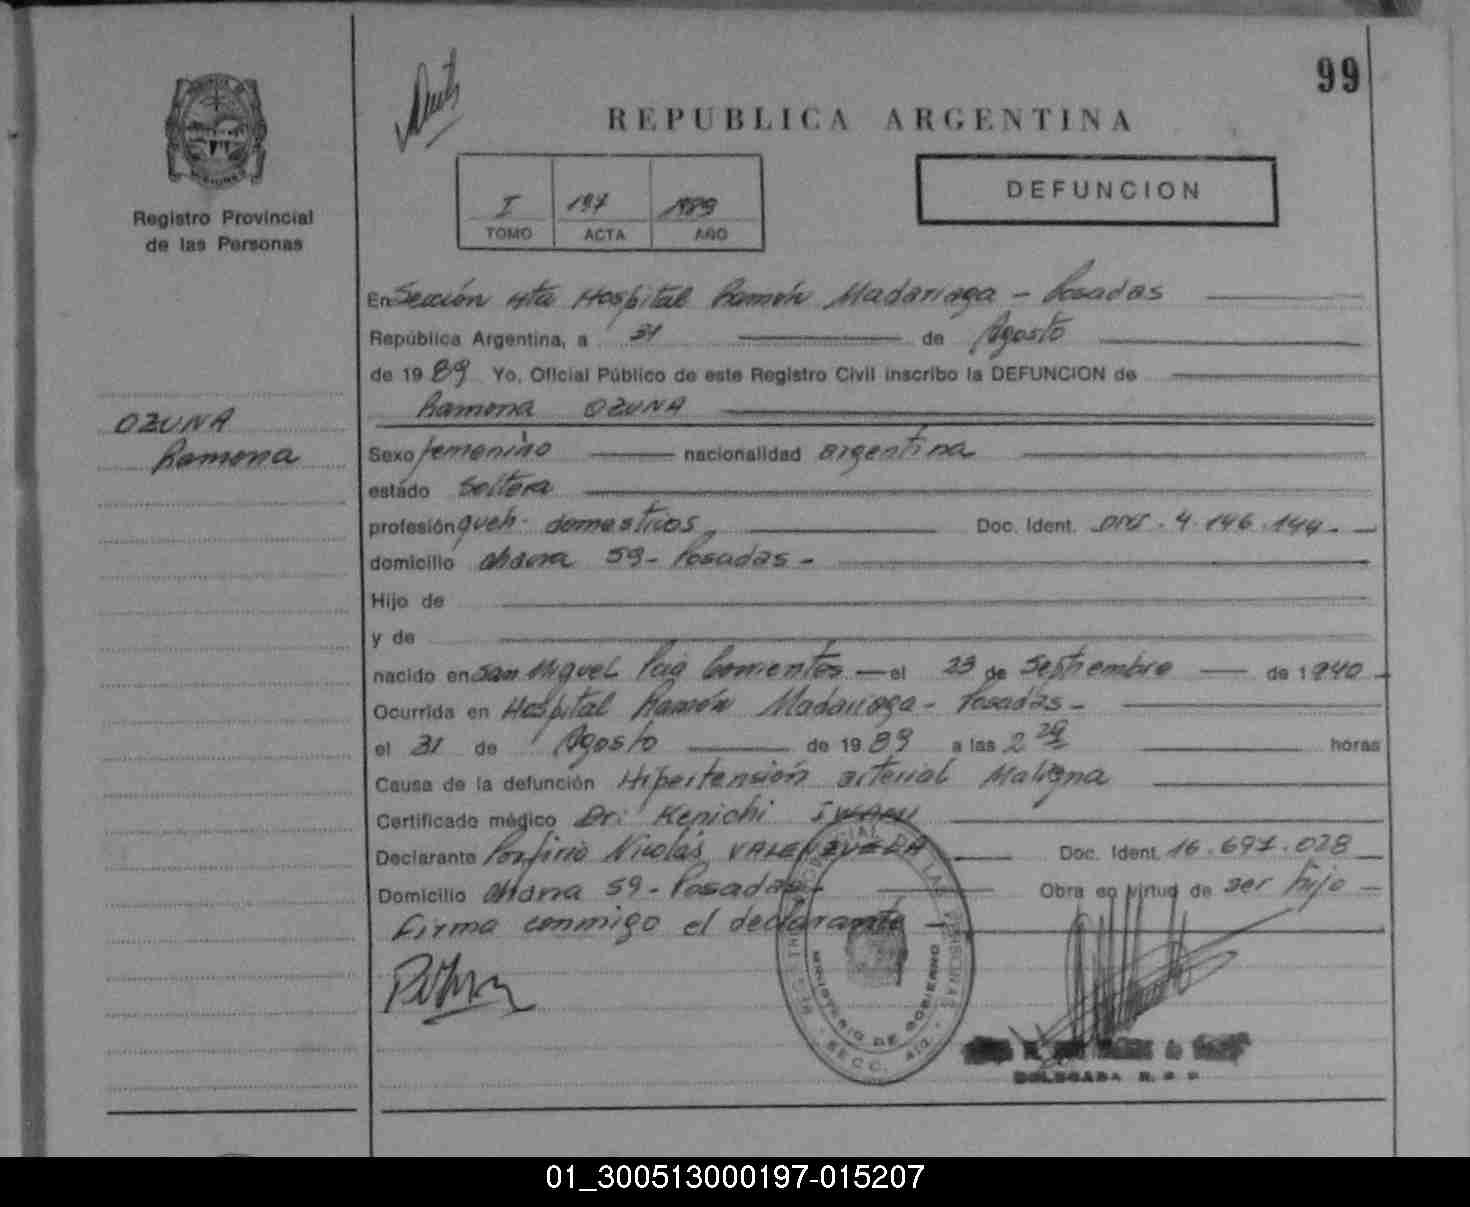 99
REPUBLICA ARGENTINA
DEFUNCION
I 197 1989
TOMO ACTA AÑO
Registro Provincial
de las Personas
OZUNA
Ramona
En Sección 4ta Hospital Ramón Madariaga - Posadas
República Argentina, a 31 de Agosto
de 1989 Yo, Oficial Público de este Registro Civil inscribo la DEFUNCION de
Ramona OZUNA
Sexo femenino nacionalidad argentina
estado soltera
profesión queh. domesticos Doc. Ident. 4.146.144
domicilio chacra 59- Posadas -
Hijo de
y de
nacido en San Miguel Pcia Corrientes el 23 de Septiembre de 1940
Ocurrida en Hospital Ramón Madariaga - Posadas -
el 31 de Agosto de 1989 a las 2 horas
Causa de la defunción Hipertensión arterial Maligna
Certificado médico Dr: Kenichi
Declarante Porfirio Nicolás VALENZUELA Doc. Ident. 16.697.028
Domicilio chacra 59 - Posadas - Obra en virtud de ser hijo
Firma conmigo el declarante
REGISTRO PROVINCIAL DE LAS PERSONAS
MINISTERIO DE GOBIERNO
SECC. 4ta.
DELEGADA R. P. P.
01_300513000197-015207